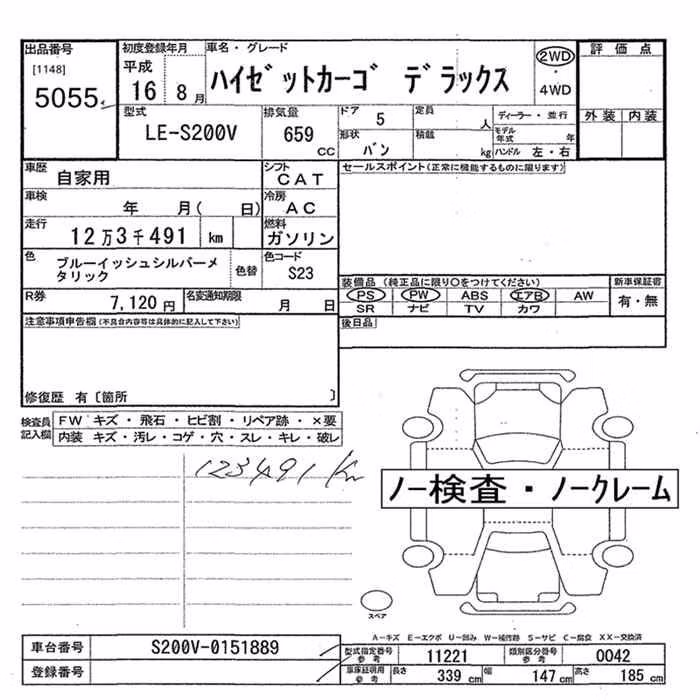 出品番号
[1148]
5055
初度登録年月
平成
16 8月
車名・グレード
ハイゼットカーゴ デラックス
2WD
・
4WD
評価点
外装 内装
型式
LE-S200V
排気量
659
CC
ドア
5
定員
人
ディーラー・並行
モデル年式 年
形状
バン
積載
kg
ハンドル 左・右
車歴
自家用
シフト
CAT
セールスポイント(正常に機能するものに限ります)
車検
年 月( 日)
冷房
AC
走行
12万3千491 km
燃料
ガソリン
色
ブルーイッシュシルバーメ
タリック
色替
色コード
S23
装備品 (純正品に限り○をつけてください)
新車保証書
PS PW ABS エアB AW
有・無
SR ナビ TV カワ
R券
7,120円
名変通知期限
月 日
後日品
注意事項申告欄(不具合内容等は具体的に記入して下さい)
修復歴 有〔箇所 〕
検査員
記入欄
FW キズ・飛石・ヒビ割・リペア跡・×要
内装 キズ・汚レ・コゲ・穴・スレ・キレ・破レ
123491 Km
ノー検査・ノークレーム
スペア
A-キズ E-エクボ U-凹み W-補修跡 S-サビ C-腐食 XX-交換済
車台番号
S200V-0151889
型式指定番号
参考
11221
類別区分番号
参考
0042
登録番号
車庫証明用
参考
長さ
339 cm
幅
147 cm
高さ
185 cm